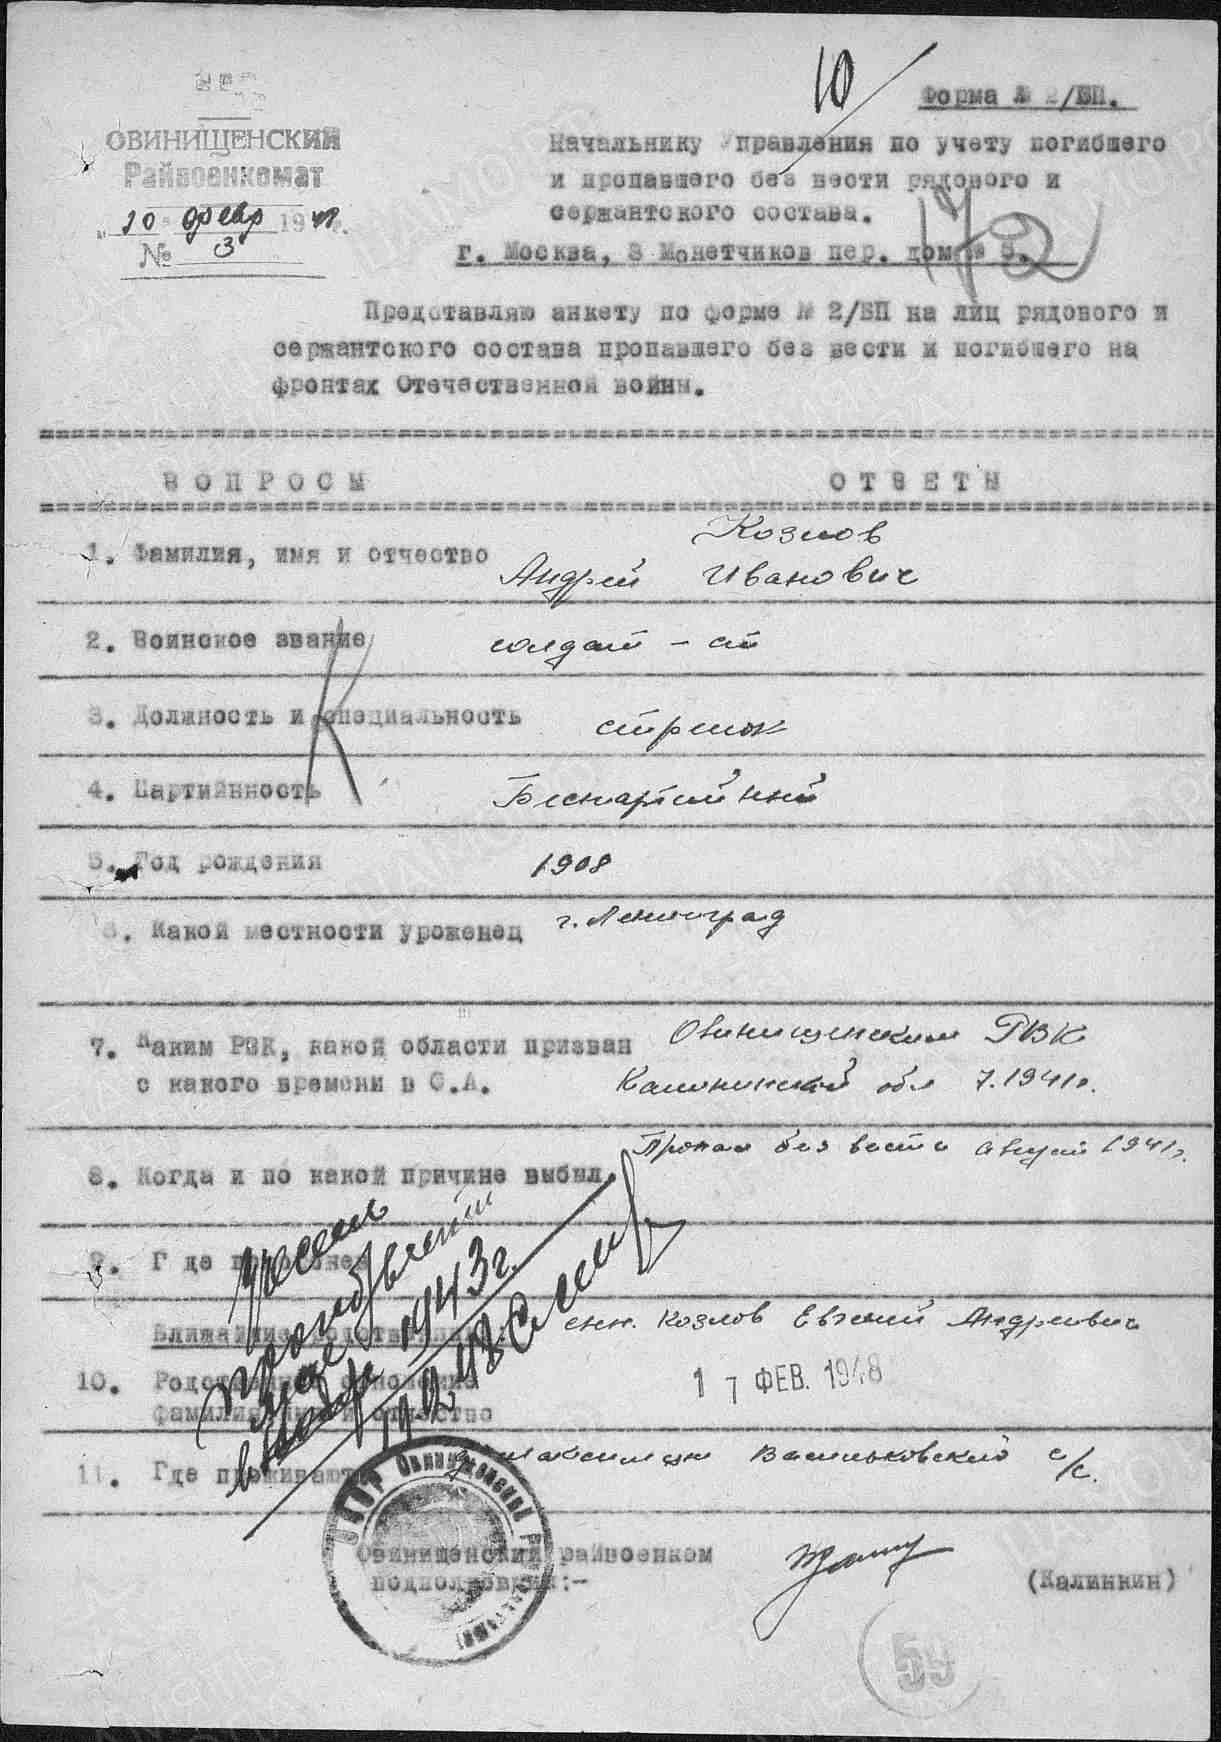 10
Форма № 2/БП.
ОВИНИЩЕНСКИЙ
Райвоенкомат
"10" февр 1948г.
№ 3
Начальнику Управления по учету погибшего
и пропавшего без вести рядового и
сержантского состава.
г. Москва, 3 Монетчиков пер. дом № 5.
Представляю анкету по форме № 2/БП на лиц рядового и
сержантского состава пропавшего без вести и погибшего на
фронтах Отечественной войны.
ВОПРОСЫ ОТВЕТЫ
Козлов
1. Фамилия, имя и отчество Андрей Иванович
2. Воинское звание солдат
3. Должность и специальность стрелок
4. Партийнность Беспартийный
5. Год рождения 1908
6. Какой местности уроженец г. Ленинград
7. Каким РВК, какой области призван Овинищенским РВК
с какого времени в С.А. Калининской обл 7.1941г.
8. Когда и по какой причине выбыл. Пропал без вести август 1941г.
9. Где похоронен
Ближайшие родственники
сын. Козлов Евгений Андреевич
10. Родственные отношения
17 ФЕВ. 1948
фамилия имя и отчество
11. Где проживают Васильковский с/с.
1943г.
Овинищенский райвоенком
подполковник:- (Калинкин)
59